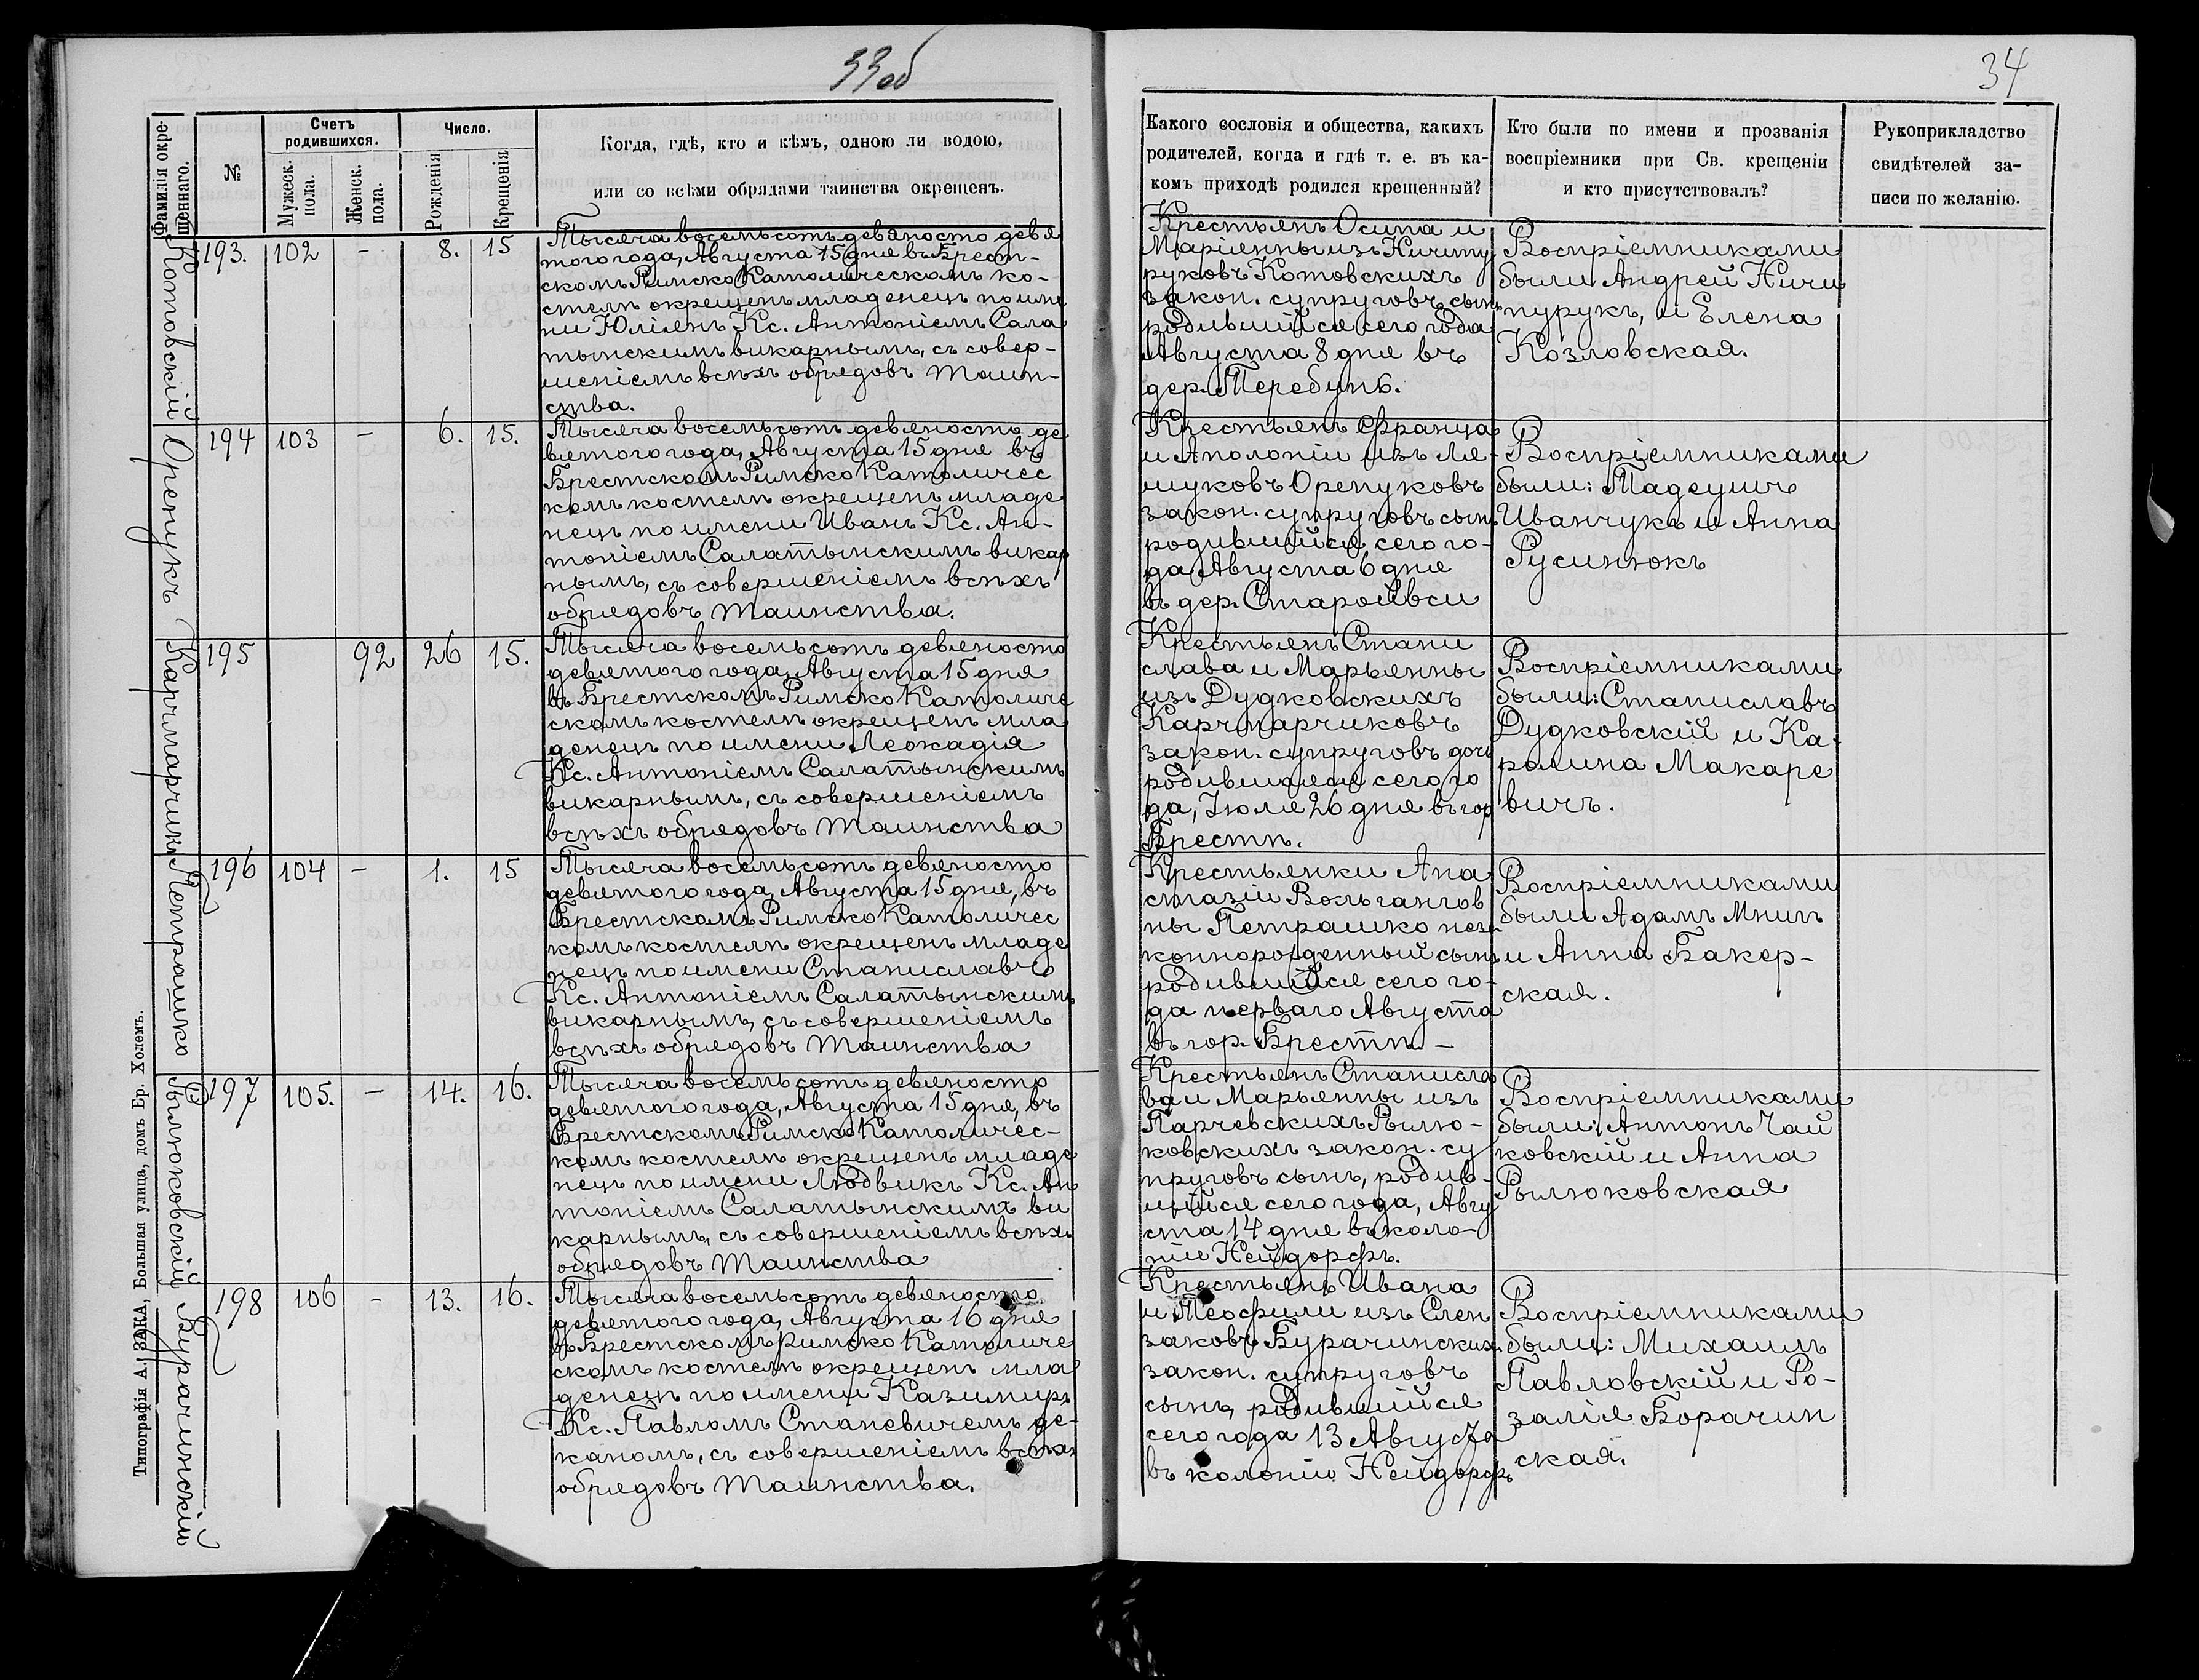 33об
Фамилія окре-
щеннаго.
№
Счетъ
родившихся.
Мужеск.
пола.
Женск.
пола.
Число.
Рожденія
Крещенія
Когда, гдѣ, кто и кѣмъ, одною ли водою,
или со всѣми обрядами таинства окрещенъ.
Котовскій
193. 102 - 8. 15
Тысяча восемьсотъ девяносто девя
того года, Августа 15 дня въ Брест-
скомъ Римско Католическомъ ко-
стелѣ окрещенъ младенецъ по име
ни Юліянъ Кс. Антоніемъ Сала
тынскимъ викарнымъ, съ совер-
шеніемъ всѣхъ обрядовъ Таин-
ства.
Орепукъ
194 103 - 6. 15.
Тысяча восемьсотъ девяносто де
вятого года, Августа 15 дня въ
Брестскомъ Римско Католичес
комъ костелѣ окрещенъ младе
нецъ по имени Иванъ Кс. Ан-
тоніемъ Салатынскимъ викар
нымъ, съ совершеніемъ всѣхъ
обрядовъ Таинства.
Карчмарчикъ
195 92 26 15.
Тысяча восемьсотъ девяносто
девятого года, Августа 15 дня
въ Брестскомъ Римско Католиче
скомъ костелѣ окрещенъ мла
денецъ по имени Леокадія
Кс. Антоніемъ Салатынскимъ
викарнымъ, съ совершеніемъ
всѣхъ обрядовъ Таинства
Петрашко
196 104 - 1. 15
Тысяча восемьсотъ девяносто
девятого года, Августа 15 дня, въ
Брестскомъ Римско Католичес
комъ костелѣ окрещенъ младе
нецъ по имени Станиславъ
Кс. Антоніемъ Салатынскимъ
викарнымъ, съ совершеніемъ
всѣхъ обрядовъ Таинства
Рылюковскій
197 105. - 14. 16.
Тысяча восемьсотъ девяносто
девятого года, Августа 15 дня, въ
Брестскомъ Римско Католичес-
комъ костелѣ окрещенъ младе
нецъ по имени Людвикъ Кс. Ан
тоніемъ Салатынскимъ ви
карнымъ, съ совершеніемъ всѣхъ
обрядовъ Таинства
Бурачинскій
198 106 - 13. 16.
Тысяча восемьсотъ девяносто
девятого года, Августа 16 дня
въ Брестскомъ Римско Католиче
скомъ костелѣ окрещенъ мла
денецъ по имени Казимиръ
Кс. Павломъ Станевичемъ де-
каномъ, съ совершеніемъ всѣхъ
обрядовъ Таинства.
Типографія А. ЗАКА, Большая улица, домъ Бр. Холемъ.
34
Какого сословія и общества, какихъ
родителей, когда и гдѣ т. е. въ ка-
комъ приходѣ родился крещенный?
Кто были по имени и прозванія
воспріемники при Св. крещеніи
и кто присутствовалъ?
Рукоприкладство
свидѣтелей за-
писи по желанію.
Крестьянъ Осипа и
Маріянны изъ Ничипу
руковъ Котовскихъ
закон. супруговъ сынъ
родившійся сего года
Августа 8 дня въ
дер. Теребунь.
Воспріемниками
были Андрей Ничи
пурукъ, и Елена
Козловская.
Крестьянъ Франца
и Аполоніи изъ Ле-
щуковъ Орепуковъ
закон. супруговъ сынъ
родившійся, сего го-
да Августа 6 дня
въ дер. Старойвси
Воспріемниками
были: Тадеушъ
Иванчукъ и Анна
Русинюкъ
Крестьянъ Стани
слава и Марьянны
изъ Дудковскихъ
Карчмарчиковъ
закон. супруговъ дочь
родившаяся сего го
да, Іюля 26 дня въ гор
Брестѣ.
Воспріемниками
были: Станиславъ
Дудковскій и Ка-
ролина Макаре
вичъ.
Крестьянки Ана
стазіи Вольгангов
ны Петрашко неза
коннорожденный сынъ
родившійся сего го-
да перваго Августа
въ гор. Брестѣ -
Воспріемниками
были Адамъ Мнихъ
и Анна Бакер-
ская.
Крестьянъ Станисла
ва и Марьянны изъ
Парчевскихъ Рылю-
ковскихъ закон. су
пруговъ сынъ, родив-
шійся сего года, Авгу
ста 14 дня въ коло-
ніи Нейдорфъ.
Воспріемниками
были: Антонъ Чай
ковскій и Анна
Рылюковская
Крестьянъ Ивана
и Теофили изъ Слен
заковъ Бурачинскихъ
закон. супруговъ
сынъ, родившійся
сего года 13 Августа
въ колоніи Нейдорфъ
Воспріемниками
были: Михаилъ
Павловскій и Ро-
залія Борачин
ская.